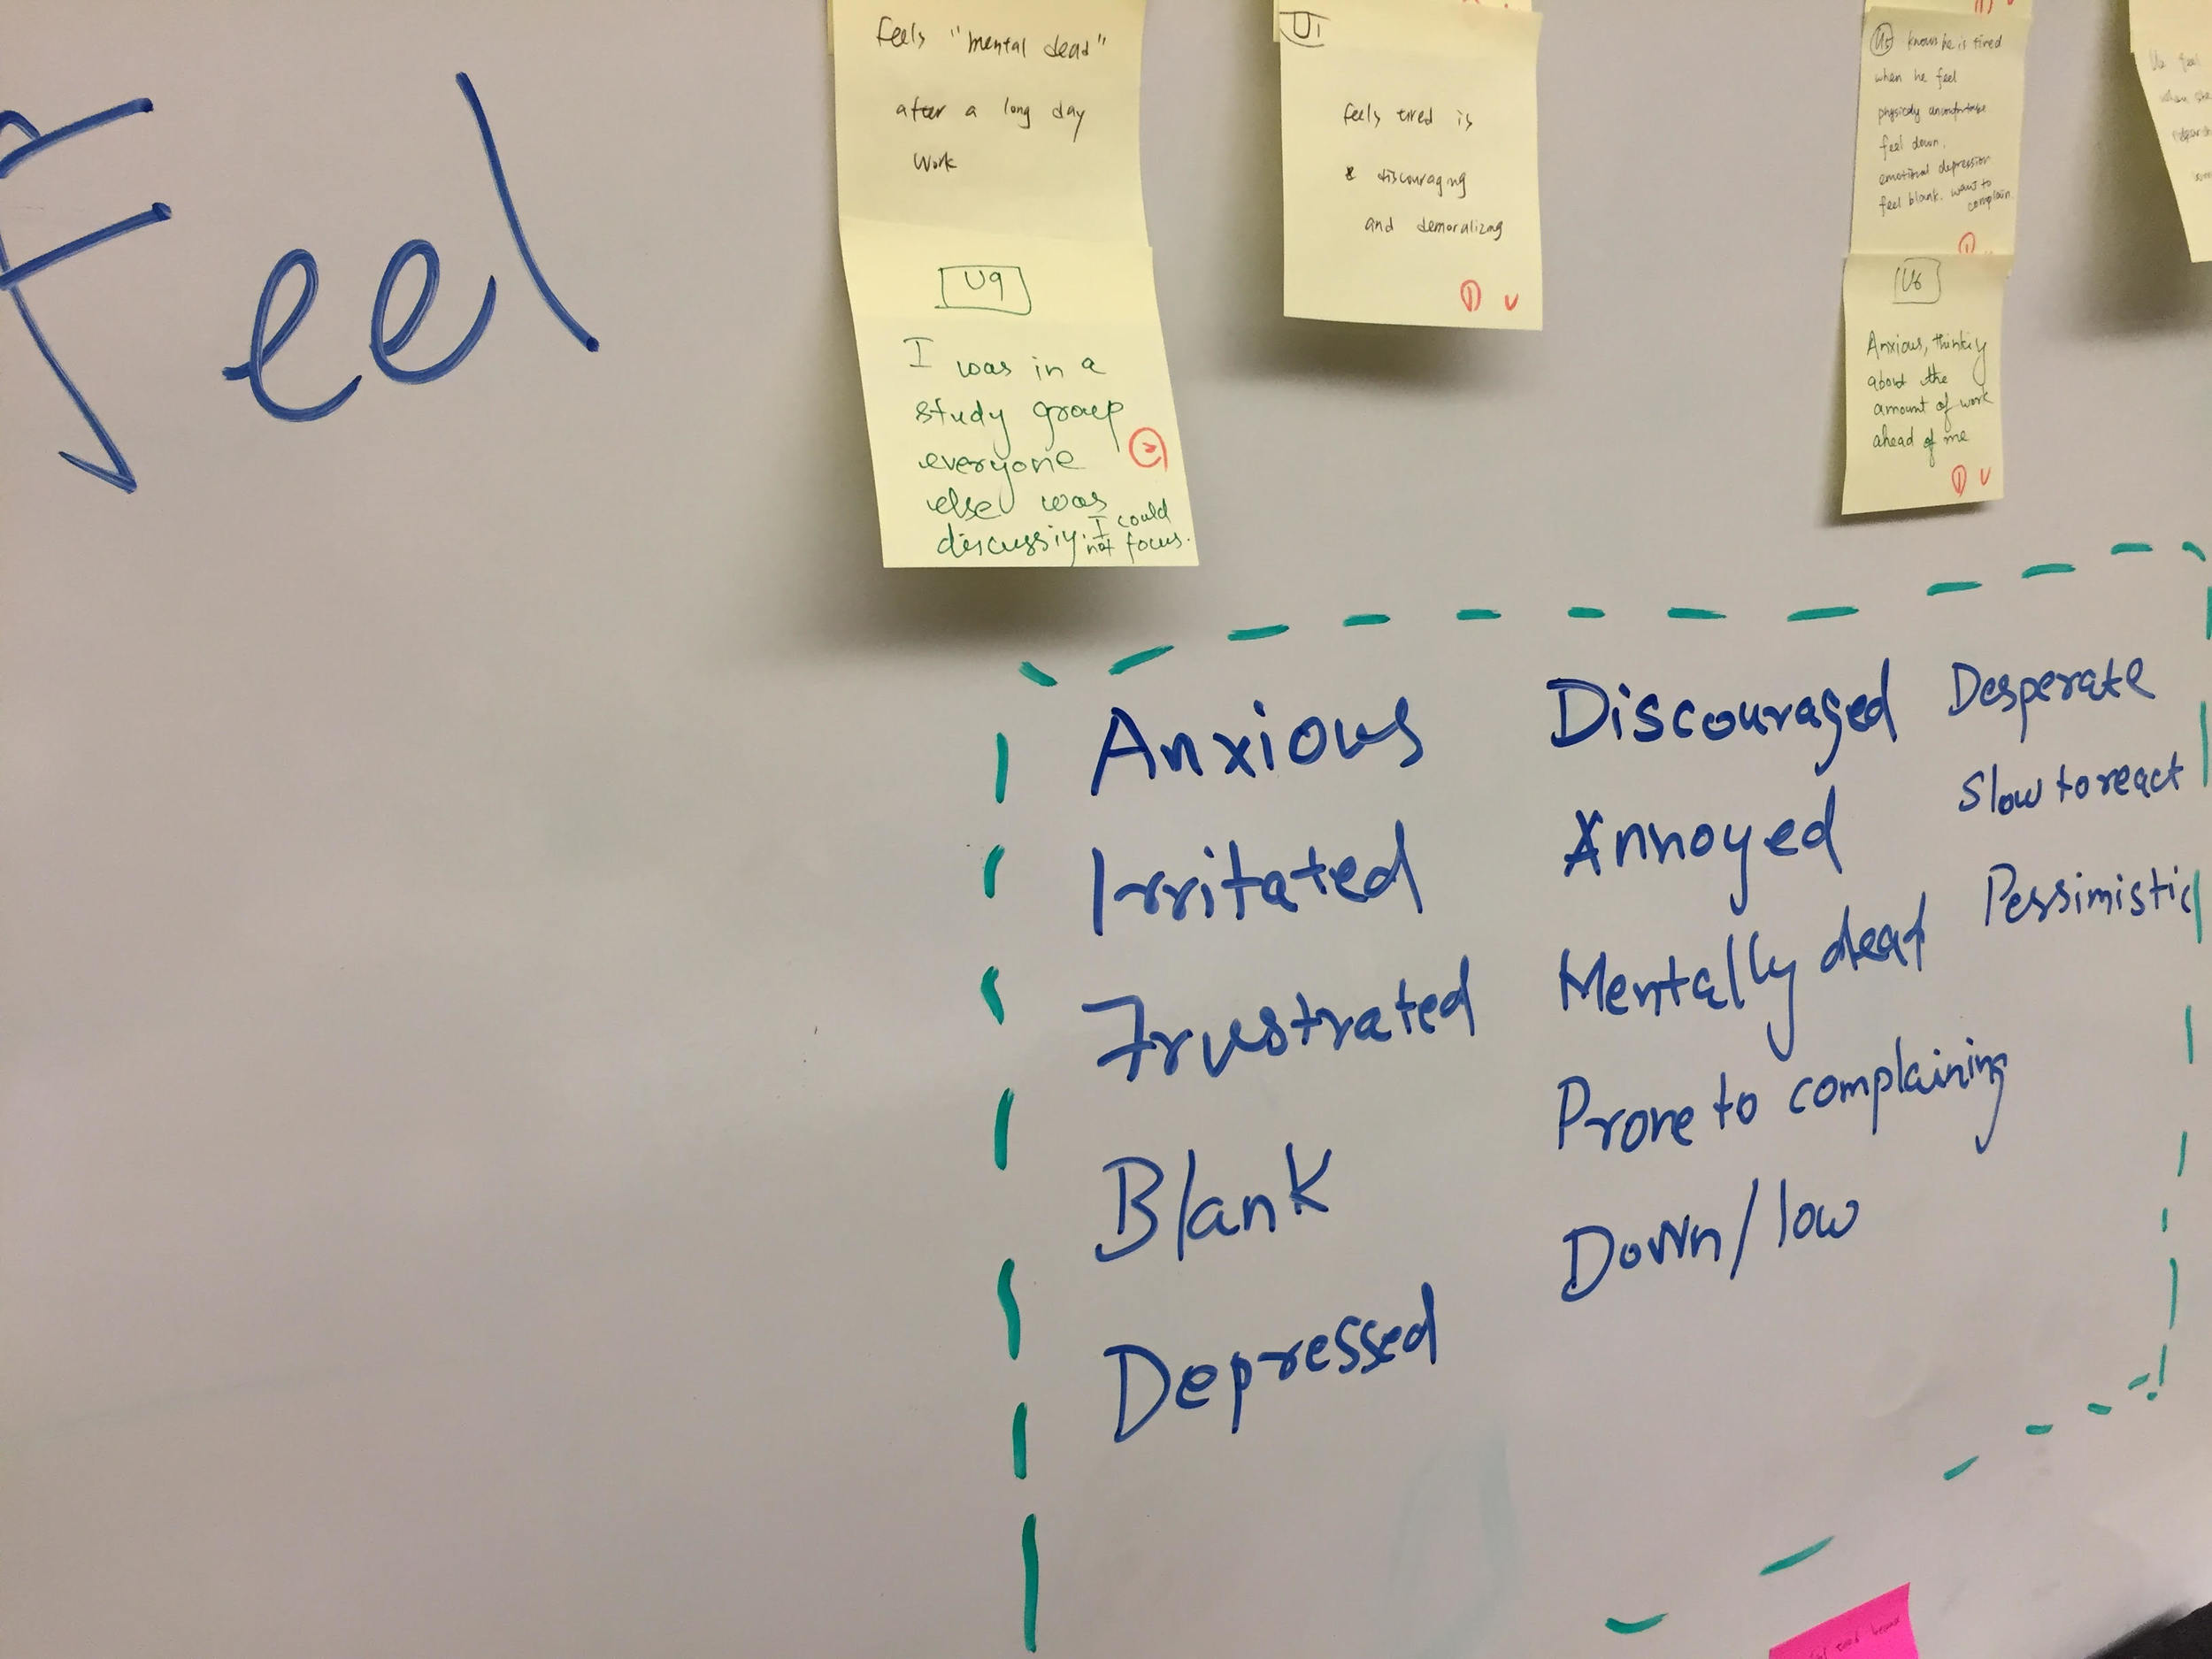 Feel
Feels "mental dead"
after a long day
work
U9
I was in a
study group
everyone
else was
discussiy. I could
not focus.
2
U1
Feels tired is
discouraging
and demoralizing
1 v
U5 knows he is tired
when he feel
physicaly uncomfortable
feel down.
emotional depression
feel blank. want to
complain.
1
U6
Anxious, thinkiy
about the
amount of work
ahead of me
1 v
Anxious
Irritated
Frustrated
Blank
Depressed
Discouraged
Annoyed
Mentally dead
Prone to complaining
Down/low
Desperate
Slow to react
Pessimistic